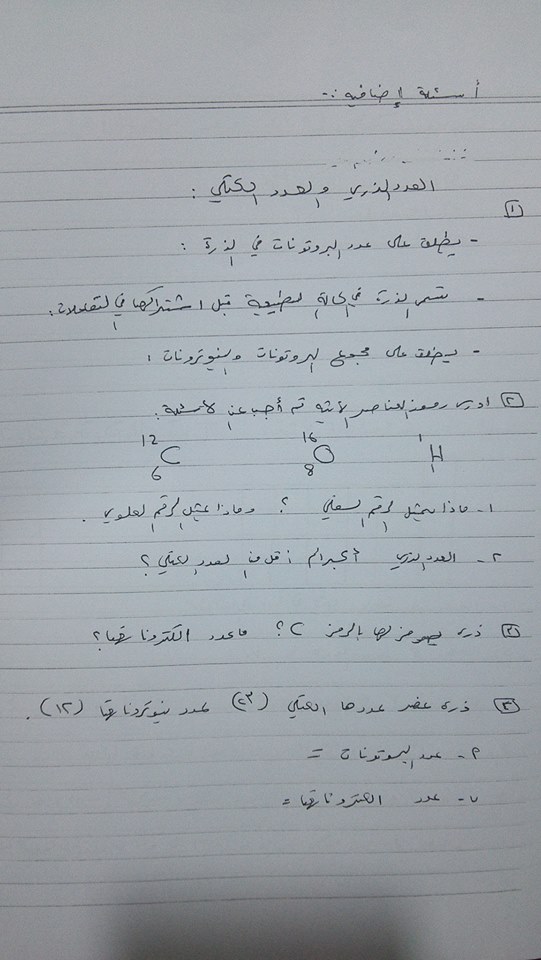 أسئلة إضافية :-
العدد الذري والعدد الكتلي :
١
- يطلق على عدد البروتونات في الذرة :
- تسمى الذرة في الحالة الطبيعية قبل اشتراكها في التفاعلات :
- يطلق على مجموع البروتونات والنيوترونات :
٢ ادرس رموز العناصر الآتية ثم أجب عن الأسئلة :
1 H 16 O 8 12 C 6
١- ماذا يمثل الرقم السفلي ؟ وماذا يمثل الرقم العلوي .
٢- العدد الذري أكبر أم أقل من العدد الكتلي ؟
٣ ذرة يرمز لها بالرمز C ؟ ما عدد الكتروناتها ؟
٣ ذرة عنصر عددها الكتلي (٢٣) عدد نيوتروناتها (١٢) .
٢- عدد البروتونات =
٧- عدد الكتروناتها =